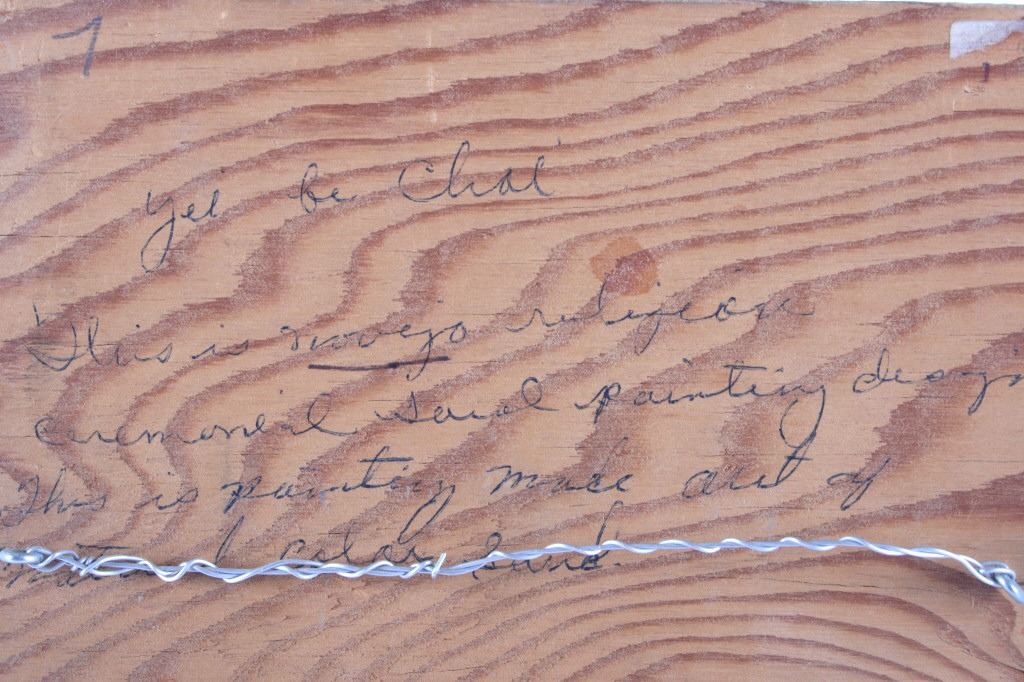 7
Yei be Chai
This is novejo religion
ceremoneal sand painting design
This is painting made out of
natural color sand.